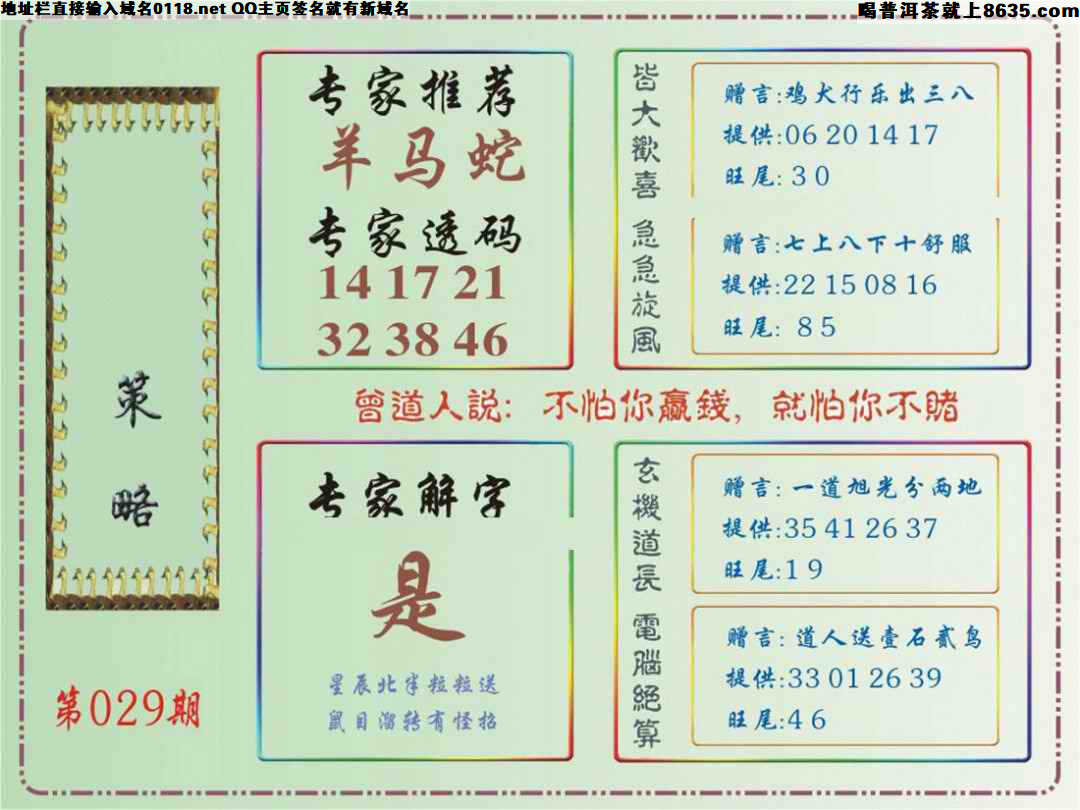 地址栏直接输入域名0118.net QQ主页签名就有新域名
喝普洱茶就上8635.com
策略
第029期
专家推荐
羊马蛇
专家透码
14 17 21
32 38 46
皆大歡喜
赠言:鸡犬行乐出三八
提供:06 20 14 17
旺尾: 3 0
急急旋風
赠言:七上八下十舒服
提供:22 15 08 16
旺尾: 8 5
曾道人説: 不怕你贏錢, 就怕你不賭
专家解字
是
星辰北半粒粒送
鼠目溜转有怪招
玄機道長
赠言: 一道旭光分两地
提供:35 41 26 37
旺尾:1 9
電腦絕算
赠言: 道人送壹石贰鸟
提供:33 01 26 39
旺尾:4 6